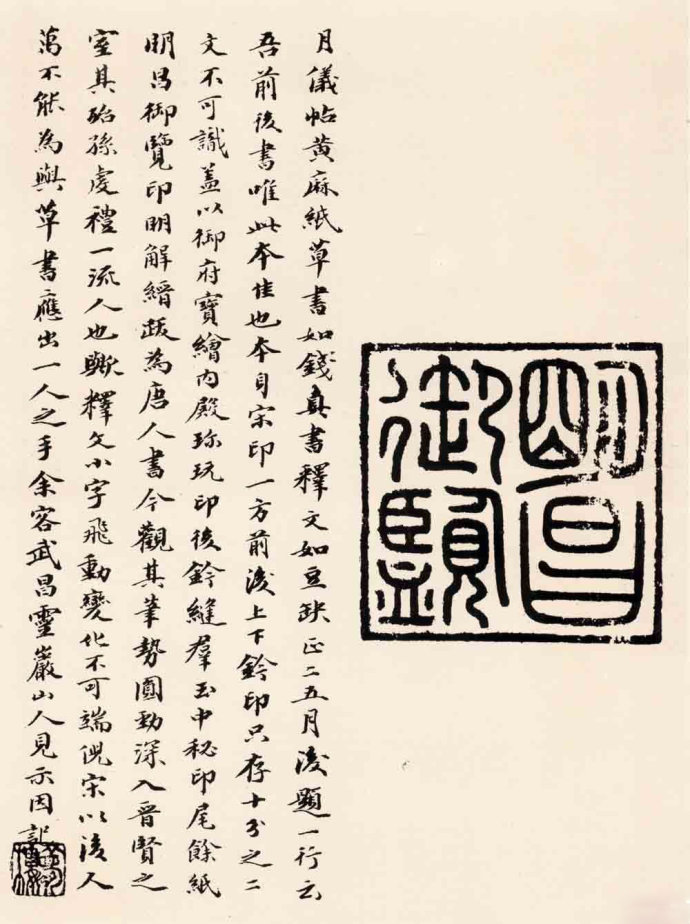 明昌
御覽
月儀帖黄麻紙草書如錢真書釋文如豆缺正二五月後題一行云
吾前後書唯此本佳也本身宋印一方前後上下鈐印只存十分之二
文不可識蓋以御府寶繪內殿珍玩印後鈐縫羣玉中秘印尾餘紙
明昌御覽印明解縉跋為唐人書今觀其筆勢圓勁深入晉賢之
室其殆孫虔禮一流人也歟釋文小字飛動變化不可端倪宋以後人
萬不能為與草書應出一人之手余客武昌靈巖山人見示因記